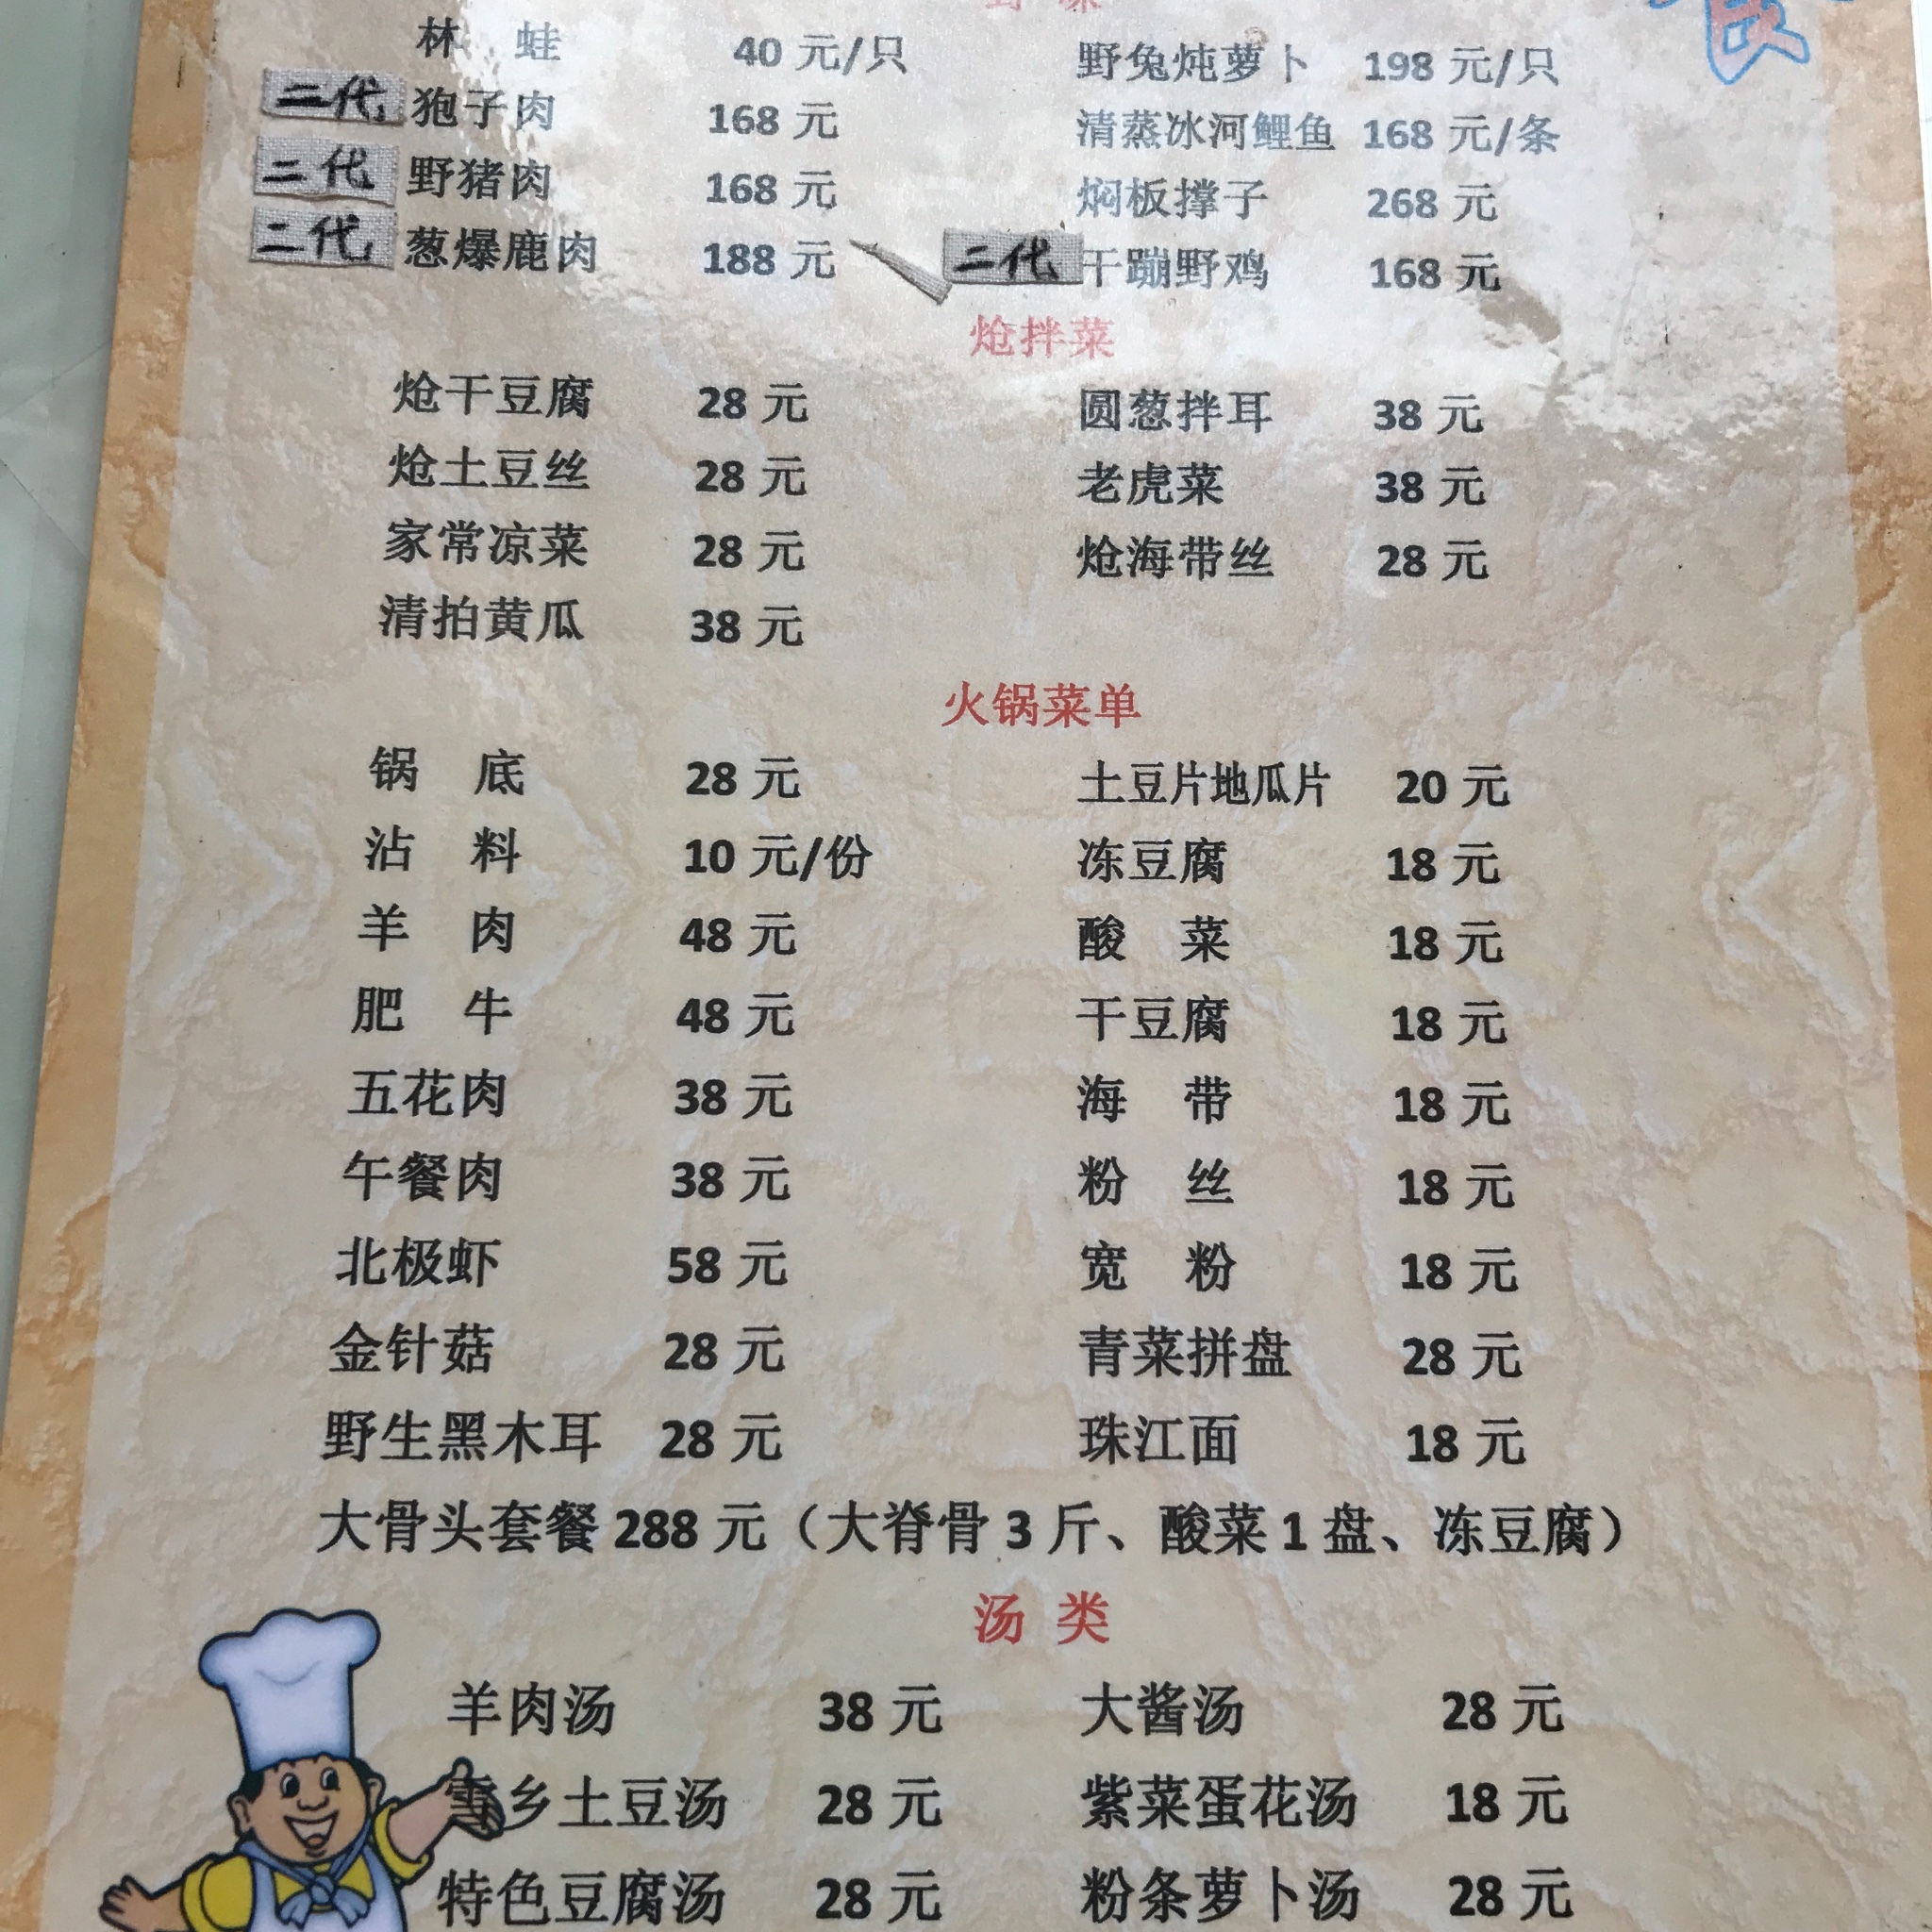 野味
林 蛙 40 元/只 野兔炖萝卜 198 元/只
二代 狍子肉 168 元 清蒸冰河鲤鱼 168 元/条
二代 野猪肉 168 元 焖板撑子 268 元
二代 葱爆鹿肉 188 元 二代 干蹦野鸡 168 元
炝拌菜
炝干豆腐 28 元 圆葱拌耳 38 元
炝土豆丝 28 元 老虎菜 38 元
家常凉菜 28 元 炝海带丝 28 元
清拍黄瓜 38 元
火锅菜单
锅 底 28 元 土豆片地瓜片 20 元
沾 料 10 元/份 冻豆腐 18 元
羊 肉 48 元 酸 菜 18 元
肥 牛 48 元 干豆腐 18 元
五花肉 38 元 海 带 18 元
午餐肉 38 元 粉 丝 18 元
北极虾 58 元 宽 粉 18 元
金针菇 28 元 青菜拼盘 28 元
野生黑木耳 28 元 珠江面 18 元
大骨头套餐 288 元（大脊骨 3 斤、酸菜 1 盘、冻豆腐）
汤 类
羊肉汤 38 元 大酱汤 28 元
雪乡土豆汤 28 元 紫菜蛋花汤 18 元
特色豆腐汤 28 元 粉条萝卜汤 28 元